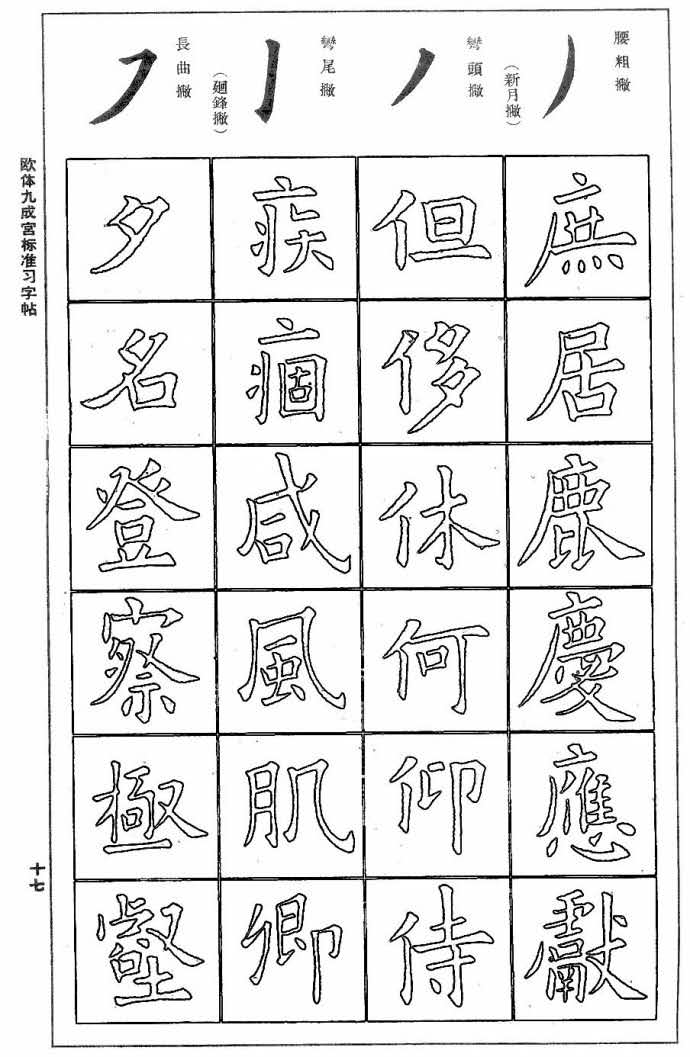 腰粗撇
庶居鹿慶應獻
彎頭撇
(新月撇)
但侈休何仰侍
彎尾撇
疾痼咸風肌卿
(廻鋒撇)
長曲撇
夕名登察極壑
欧体九成宫标准习字帖
十七